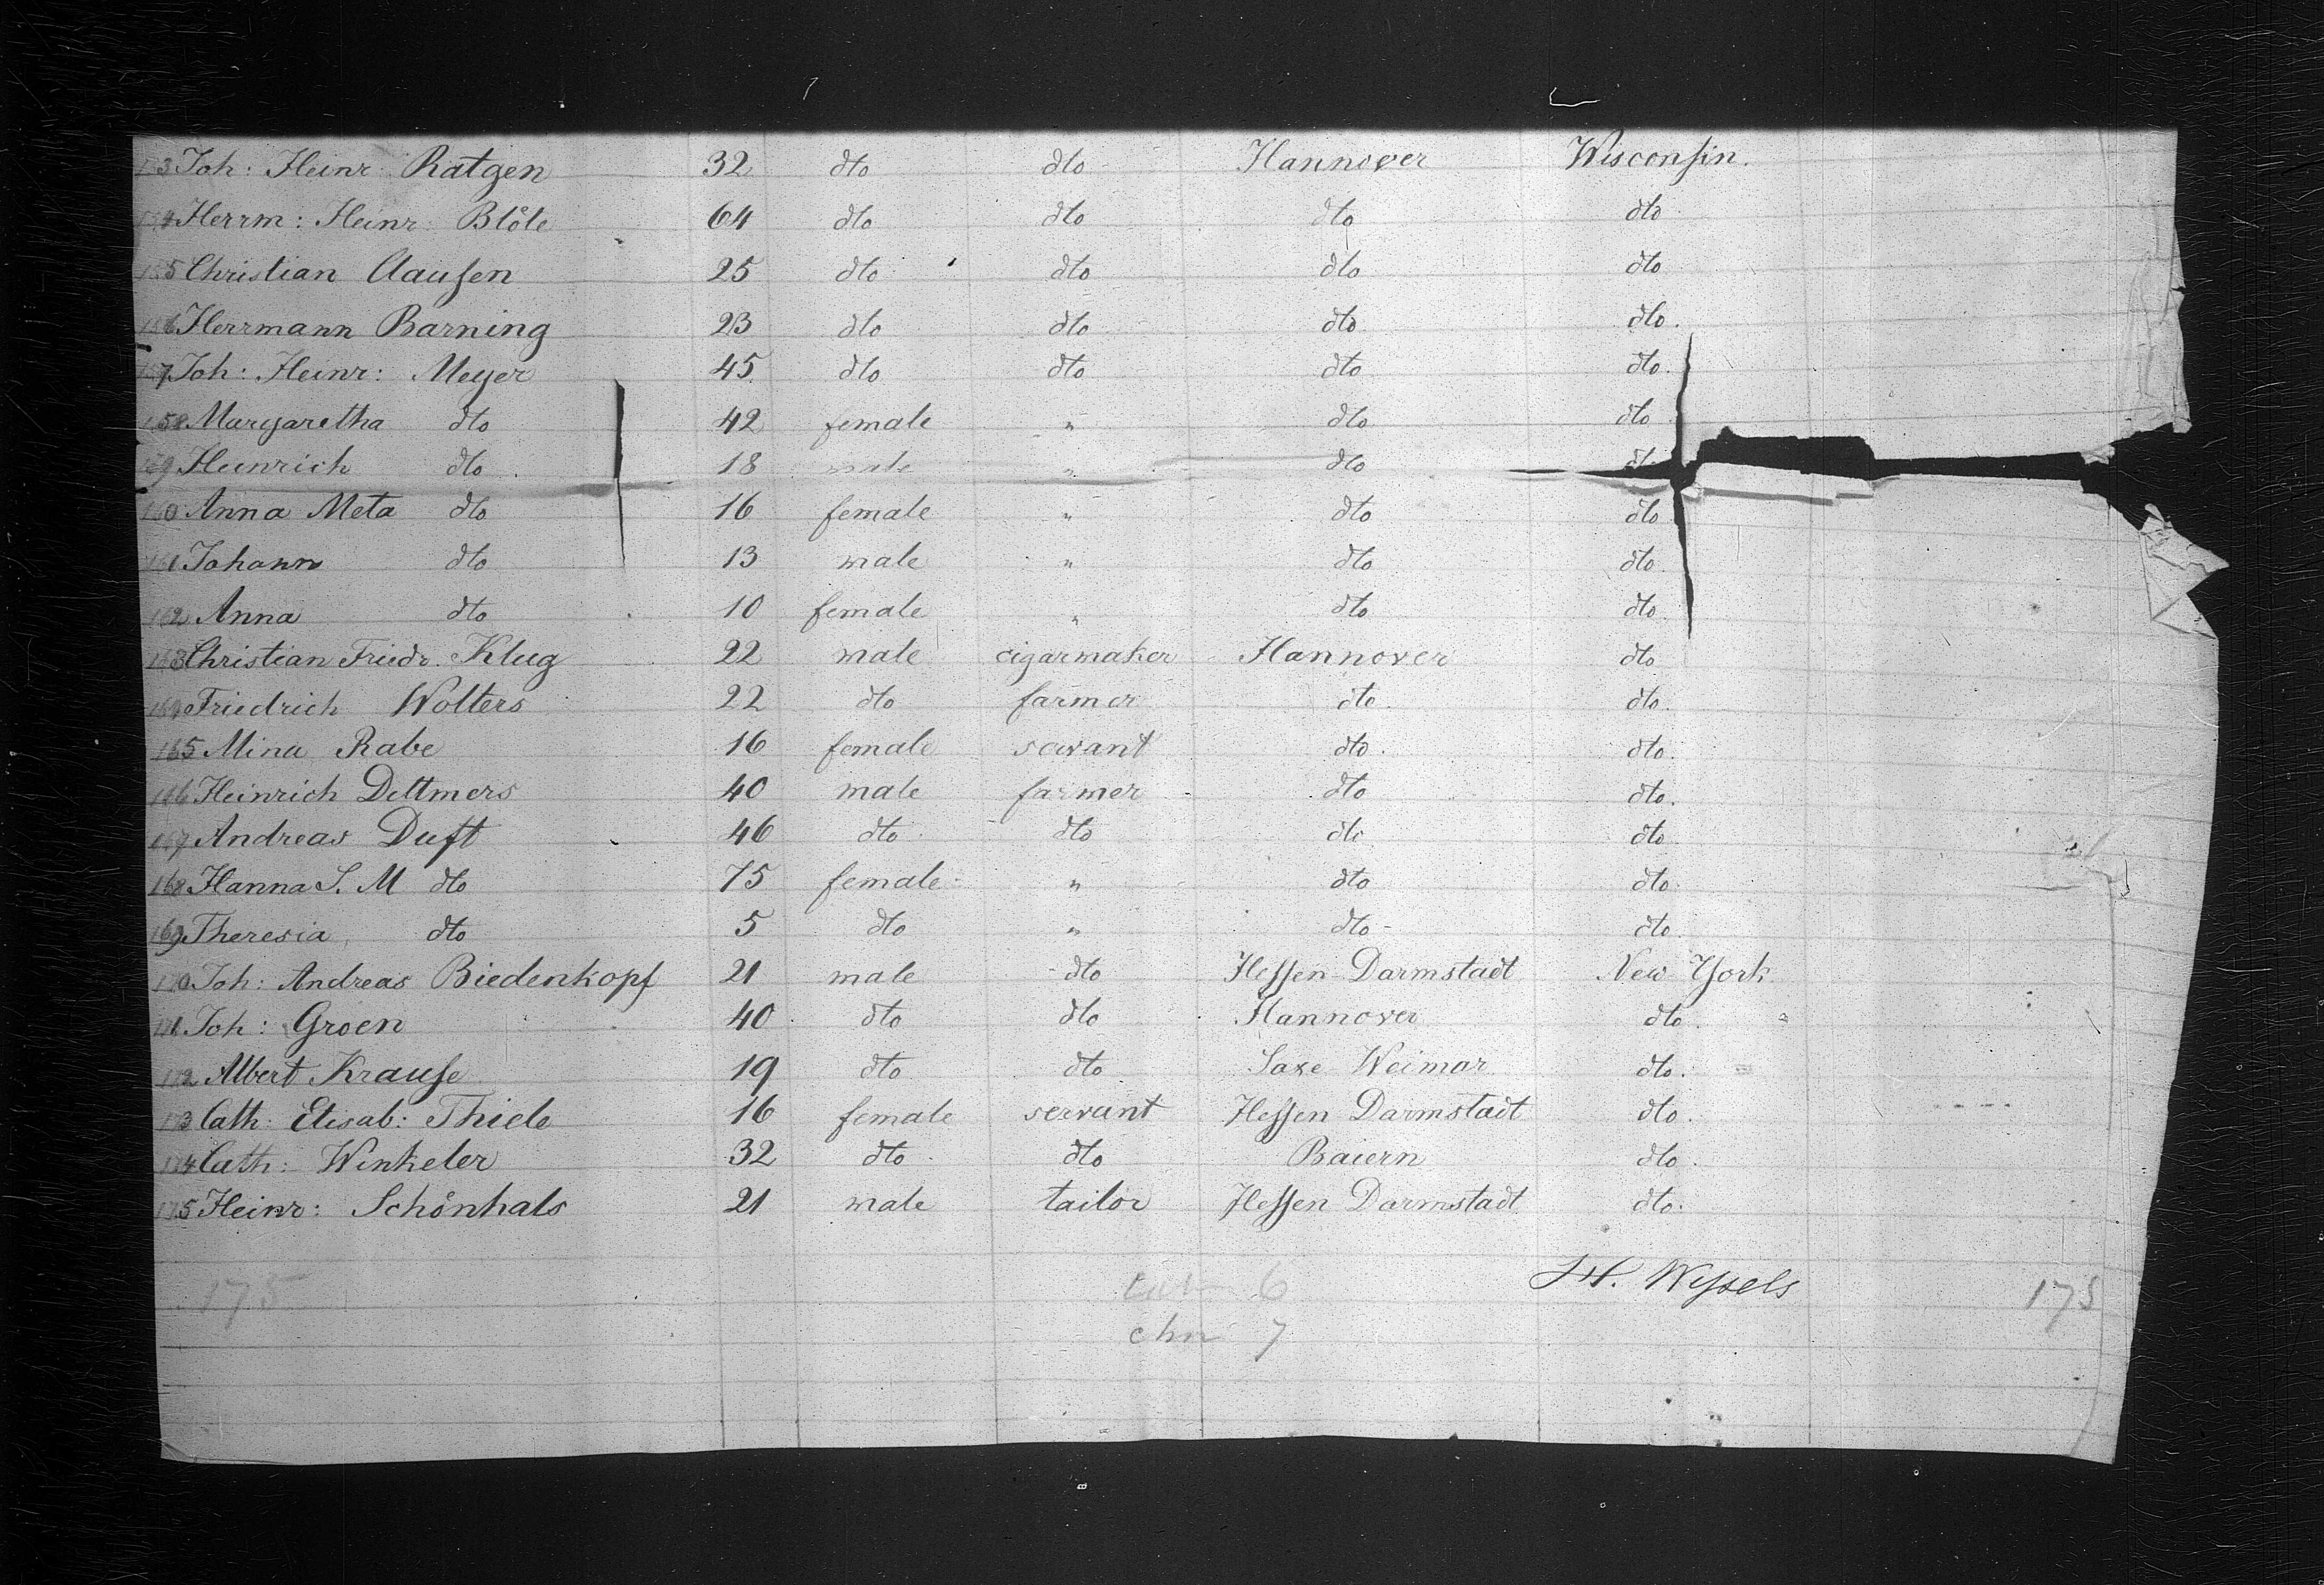 153 Joh: Heinr: Ratgen 32 dto dto Hannover Wisconsin.
154 Herrm: Heinr: Blöte 64 dto dto dto dto
155 Christian Clausen 25 dto dto dto dto
156 Herrmann Barning 23 dto dto dto dto.
157 Joh: Heinr: Meyer 45 dto dto dto dto.
158 Margaretha dto 42 female " dto dto
159 Heinrich dto. 18 male " dto dto
160 Anna Meta dto 16 female " dto dto
161 Johann dto 13 male " dto dto.
162 Anna dto 10 female " dto dto.
163 Christian Friedr. Klug 22 male cigarmaker Hannover dto
164 Friedrich Wolters 22 dto farmer dto. dto.
165 Mina Rabe 16 female servant dto. dto.
166 Heinrich Dettmers 40 male farmer dto dto.
167 Andreas Duft 46 dto dto dto dto.
168 Hanna S. M dto 75 female " dto dto.
169 Theresia dto 5 dto " dto dto.
170 Joh: Andreas Biedenkopf 21 male dto Hessen Darmstadt New York
171 Joh: Groen 40 dto dto Hannover dto.
172 Albert Krause 19 dto dto Saxe Weimar dto.
173 Cath: Elisab: Thiele 16 female servant Hessen Darmstadt dto.
174 Cath: Winkeler 32 dto dto Baiern dto.
175 Heinr: Schönhals 21 male tailor Hessen Darmstadt dto.
H. Wessels
175 6 175
chn 7